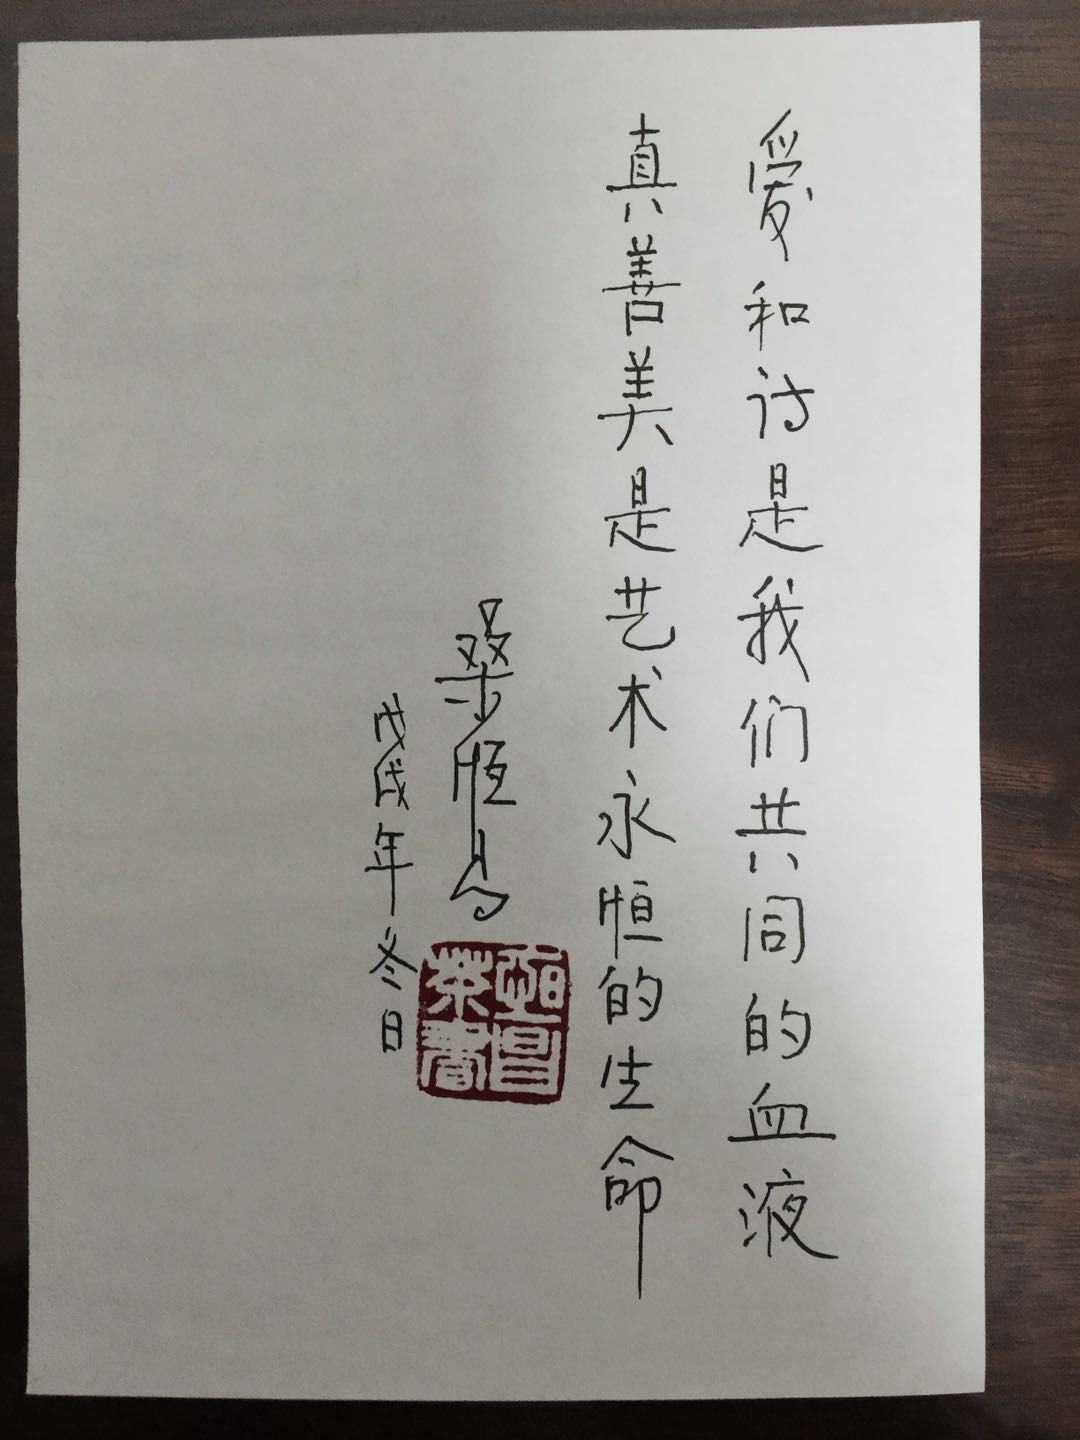 爱和诗是我们共同的血液
真善美是艺术永恒的生命
桑恒昌
戊戌年冬日